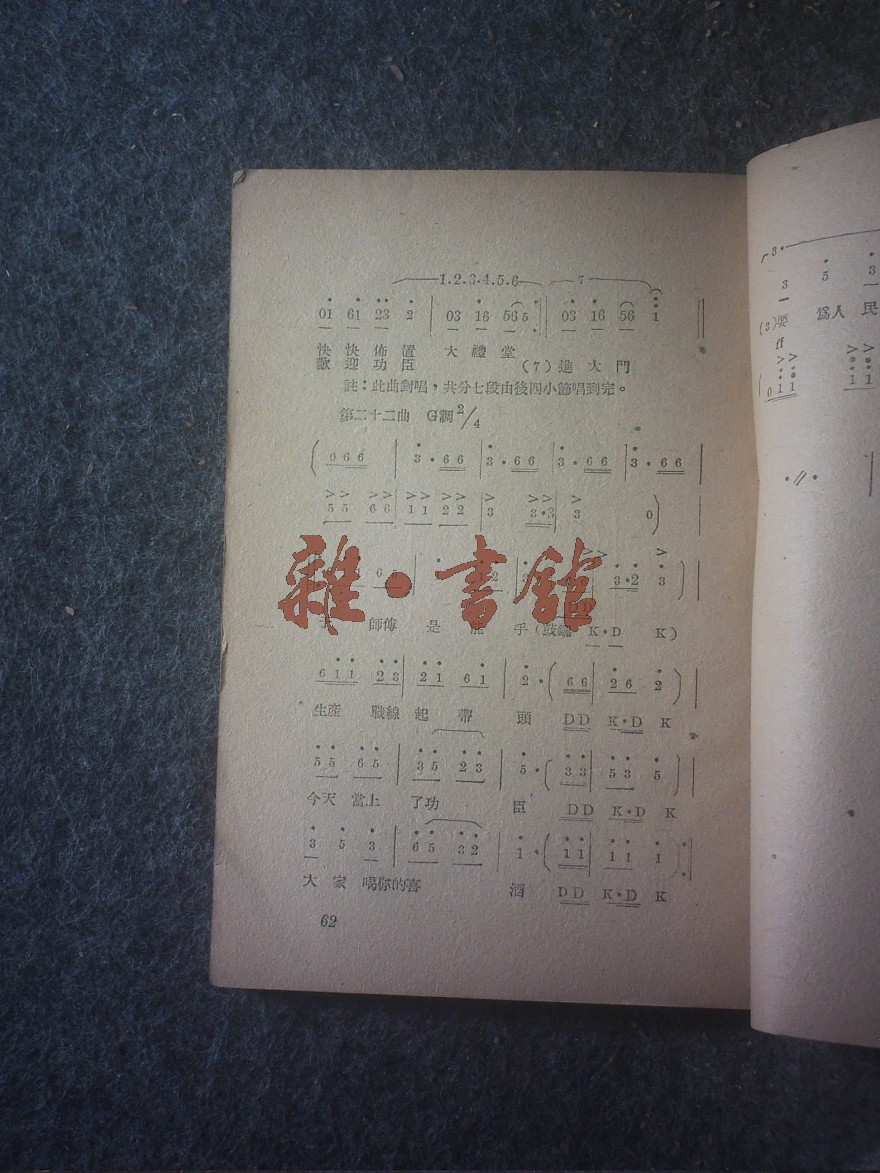 1.2.3.4.5.6 7
01 61 23 2 | 03 16 56 5 : 03 16 56 1
快 快 佈 置 大 禮 堂
歡 迎 功 臣 (7) 進 大 門
註:此曲對唱,共分七段由後四小節唱到完。
第二十二曲 G調 2/4
( 066 | 3·66 | 3·66 | 3·66 | 3·66
55 66 | 11 22 | 3 3·3 | 3 0)
雜·書館
師傅 是 手(鼓 K·D K)
611 23 | 21 61 | 2·( 66 | 26 2 )
生產 戰線 起 帶 頭 DD K·D K
55 65 | 35 23 | 5·( 33 | 53 5 )
今天 當上 了功 臣 DD K·D K
3 5 3 | 65 32 | 1·( 11 | 11 1 )
大 家 喝你的喜 酒 DD K·D K
62
3·
3 5 3
(3)要 爲人 民
ff
(011 11 1
·//·